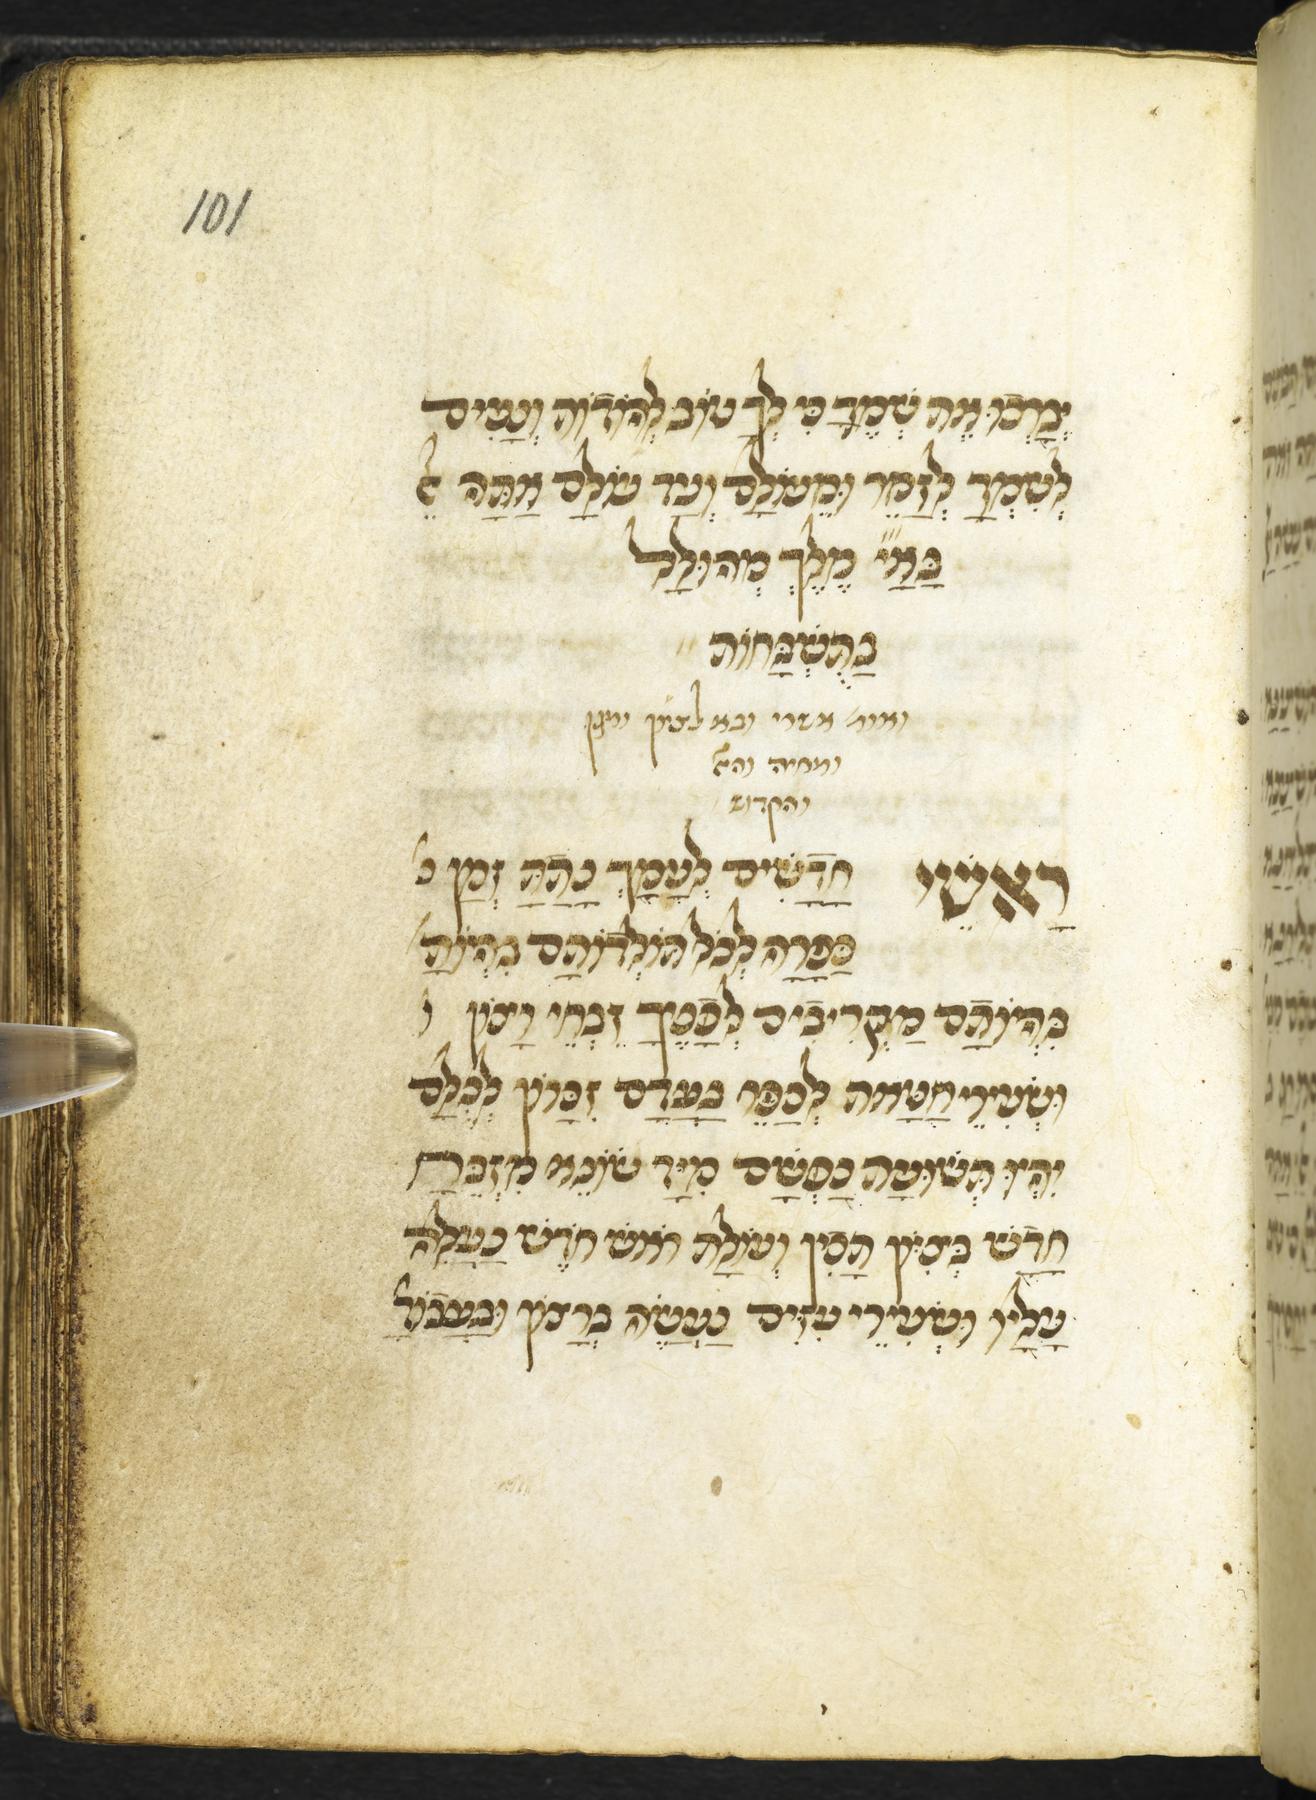 101
יְבָרְכוּ אֶת שְׁמֶךָ כִּי לְךָ טוֹב לְהוֹדוֹת וְנָעִים
לְשִׁמְךָ לְזַמֵּר וּמֵעוֹלָם וְעַד עוֹלָם אַתָּה אֵל
בָּ אַ יי מֶלֶךְ מְהוּלָּל
בַּתֻּשְׁבָּחוֹת
ואומ׳ אשרי ובא לציון
והקדוש
רָאשֵׁי חֳדָשִׁים לְעַמְּךָ נָתַתָּ זְמַן כ
כַּפָּרָה לְכָל תּוֹלְדוֹתָם בִּהְיוֹתָ
בִּהְיוֹתָם מַקְרִיבִים לְפָנֶיךָ זִבְחֵי רָצוֹן ו
וּשְׂעִירֵי חַטָּאת לְכַפֵּר בַּעֲדָם זִכָּרוֹן לְכֻלָּם
יִהְיוּ תְּשׁוּעַת נַפְשָׁם מִיַּד שׂוֹנֵא מִזְבֵּחַ
חָדָשׁ בְּצִיּוֹן תָּכִין וְעוֹלַת רֹאשׁ חֹדֶשׁ נַעֲלֶה
עָלָיו וּשְׂעִירֵי עִזִּים נַעֲשֶׂה בְרָצוֹן וּבַעֲבוֹ